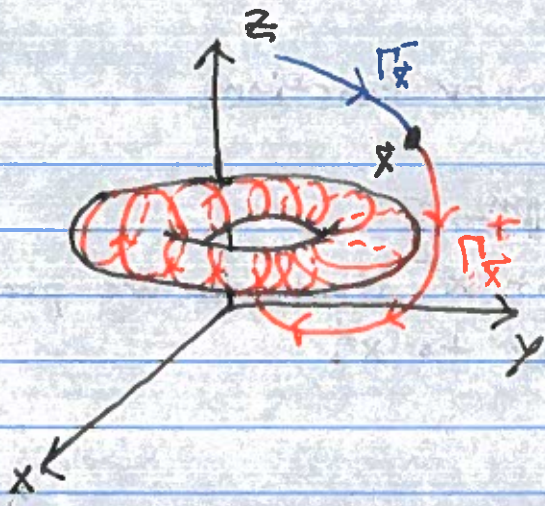 z
Γx⃗⁻
x⃗
Γx⃗⁺
y
x